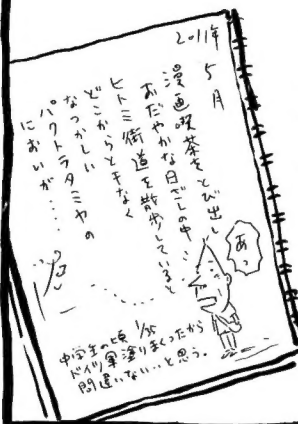 2011年 5月
漫画喫茶をとび出し
おだやかな日ざしの中、
ヒトミ街道を散歩していると
どこからともなく
なつかしい
パクトラタミヤの
においが……
あっ
中学生の頃 1/35
ドイツ軍塗りまくったから
間違いない…と思う。